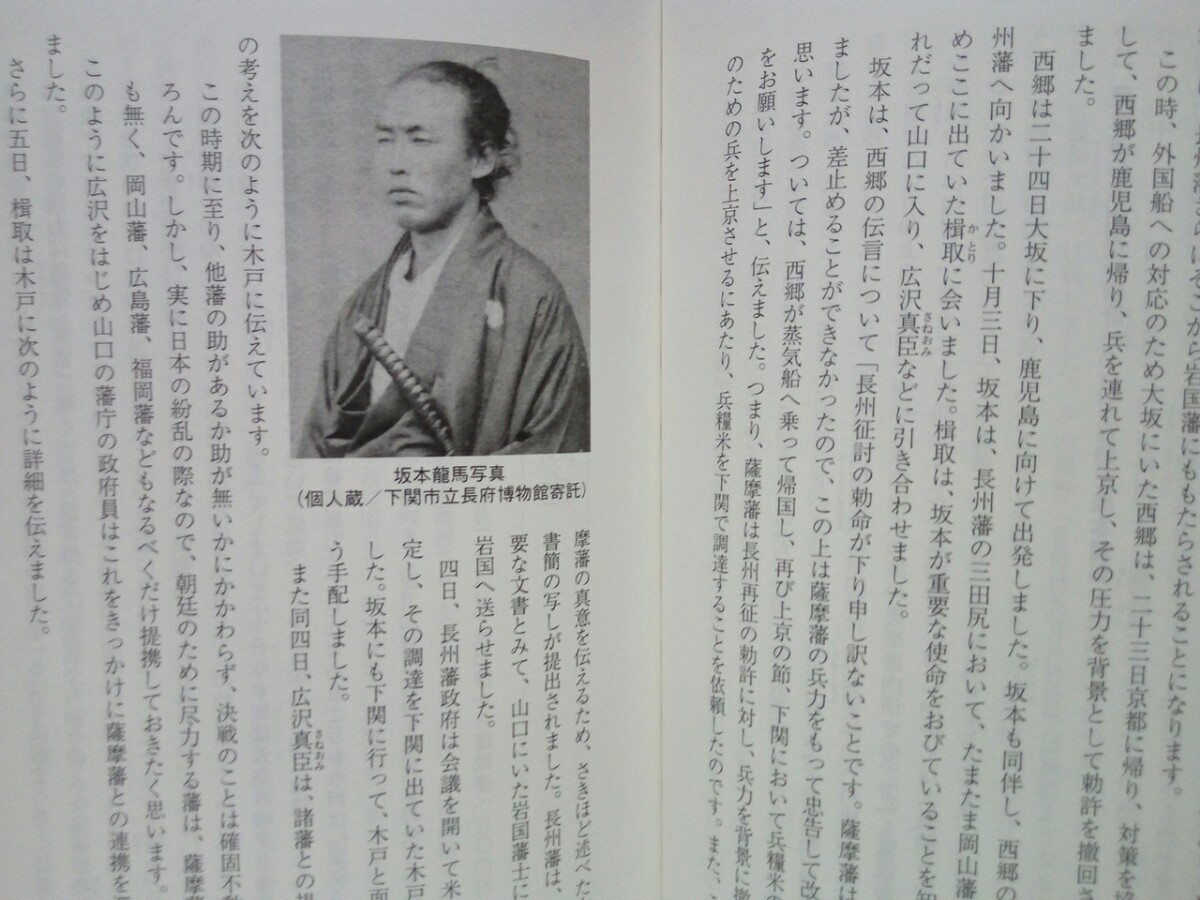 この時、外国船への対応のため大坂にいた西郷は、二十三日京都に帰り、対策を
して、西郷が鹿児島に帰り、兵を連れて上京し、その圧力を背景として勅許を撤回さ
ました。
西郷は二十四日大坂に下り、鹿児島に向けて出発しました。坂本も同伴し、西郷の
州藩へ向かいました。十月三日、坂本は、長州藩の三田尻において、たまたま岡山藩
めここに出ていた楫取に会いました。楫取は、坂本が重要な使命をおびていることを知
かとり
れだって山口に入り、広沢真臣などに引き合わせました。
さねおみ
坂本は、西郷の伝言について「長州征討の勅命が下り申し訳ないことです。薩摩藩は
ましたが、差止めることができなかったので、この上は薩摩藩の兵力をもって忠告して改
思います。ついては、西郷が蒸気船へ乗って帰国し、再び上京の節、下関において兵糧米の
をお願いします」と、伝えました。つまり、薩摩藩は長州再征の勅許に対し、兵力を背景に撤
のための兵を上京させるにあたり、兵糧米を下関で調達することを依頼したのです。また、
坂本龍馬写真
(個人蔵／下関市立長府博物館寄託)
摩藩の真意を伝えるため、さきほど述べた
書簡の写しが提出されました。長州藩は、
要な文書とみて、山口にいた岩国藩士に
岩国へ送らせました。
四日、長州藩政府は会議を開いて米
定し、その調達を下関に出ていた木戸
した。坂本にも下関に行って、木戸と面
う手配しました。
また同四日、広沢真臣は、諸藩との
さねおみ
の考えを次のように木戸に伝えています。
この時期に至り、他藩の助があるか助が無いかにかかわらず、決戦のことは確固不動
ろんです。しかし、実に日本の紛乱の際なので、朝廷のために尽力する藩は、薩摩
も無く、岡山藩、広島藩、福岡藩などもなるべくだけ提携しておきたく思います。
このように広沢をはじめ山口の藩庁の政府員はこれをきっかけに薩摩藩との連携を
ました。
さらに五日、楫取は木戸に次のように詳細を伝えました。